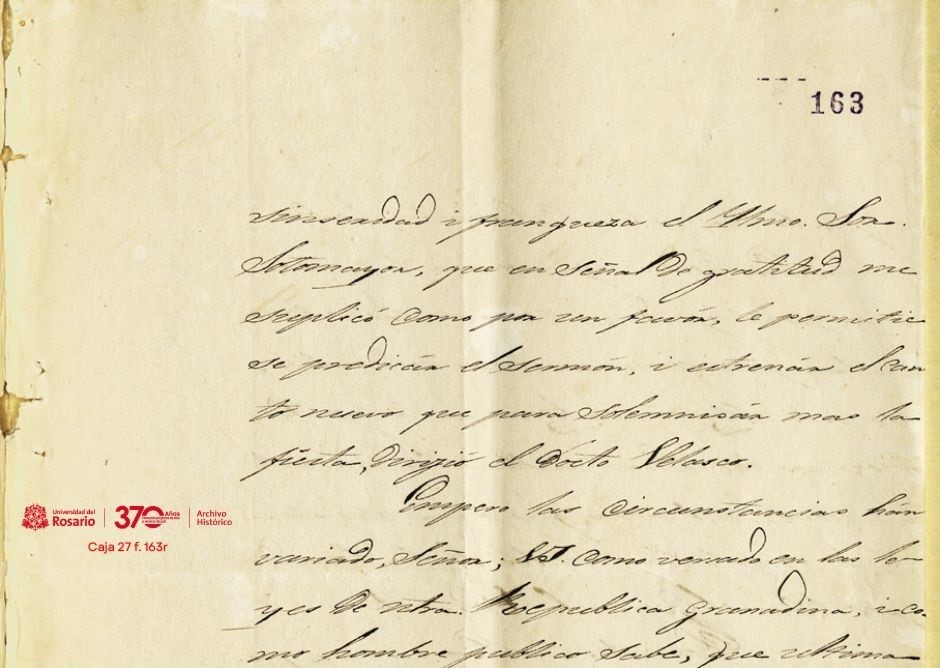 163
sinseridad i franqueza el Yllmo. Sor.
Sotomayor, que en señal de gratitud me
suplicó como por un favór, le permitie
se predicár el sermón, i estrenár el can
to nuevo que para solemnisár mas la
fiesta, dirijió el Docto Velasco.
Empero las circunstancias han
variado, Señor; V. como versado en las le
yes de ntra. Republica Granadina, i co
mo hombre publico sabe, que ultima
Universidad del
Rosario
370 Años
Archivo
Histórico
Caja 27 f. 163r